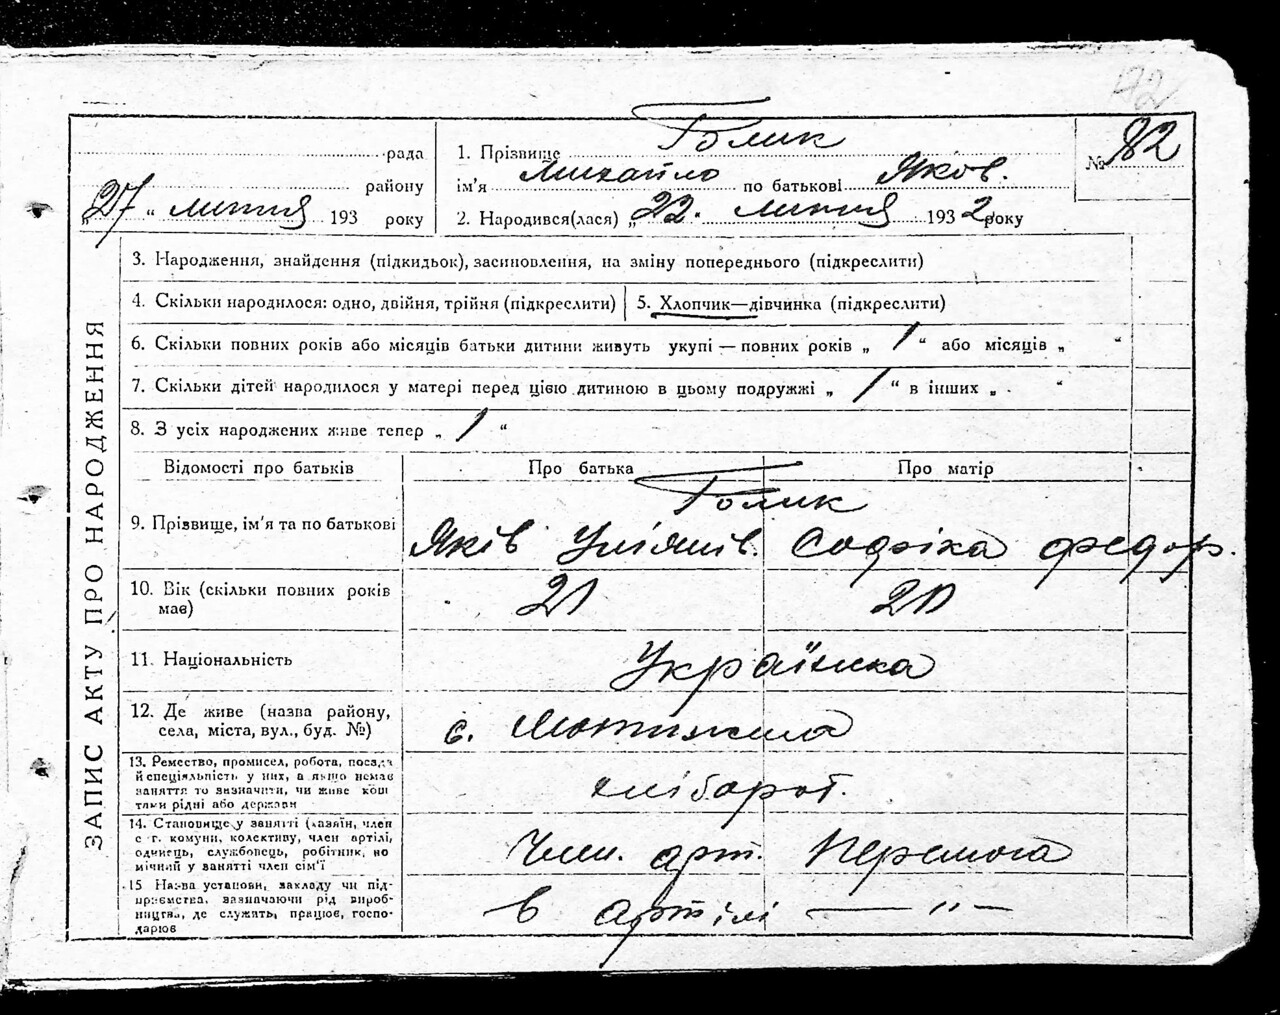 172
№ 82
рада
району
„27 “ липня 193 року
1. Прізвище Голик
ім'я Михайло по батькові Яков.
2. Народився(лася) „ 22. липня 1932 року
ЗАПИС АКТУ ПРО НАРОДЖЕННЯ
3. Народження, знайдення (підкидьок), засиновлення, на зміну попереднього (підкреслити)
4. Скільки народилося: одно, двійня, трійня (підкреслити)
5. Хлопчик—дівчинка (підкреслити)
6. Скільки повних років або місяців батьки дитини живуть укупі — повних років „ 1 “ або місяців „ “
7. Скільки дітей народилося у матері перед цією дитиною в цьому подружжі „ 1 “ в інших „ “
8. З усіх народжених живе тепер „ 1 “
Відомості про батьків Про батька Про матір
Голик
9. Прізвище, ім'я та по батькові Яків Уліянів. Софіка Федор.
10. Вік (скільки повних років 21 20
має)
11. Національність Українка
12. Де живе (назва району,
села, міста, вул., буд. №) с. Мотижила
13. Ремество, промисел, робота, посада
й спеціяльність у них, а якщо немає
заняття то зазначити, чи живе кош
тами рідні або держави
хлібороб.
14. Становище у занятті (хазяїн, член
с г. комуни, колективу, член артілі,
одинець, службовець, робітник, по
мічний у занятті член сім'ї
Член. арт. Перемога
15 Назва установи, закладу чи під-
приємства, зазначаючи рід вироб-
ництва, де служать, працює, госпо-
дарює
в артілі — „ —